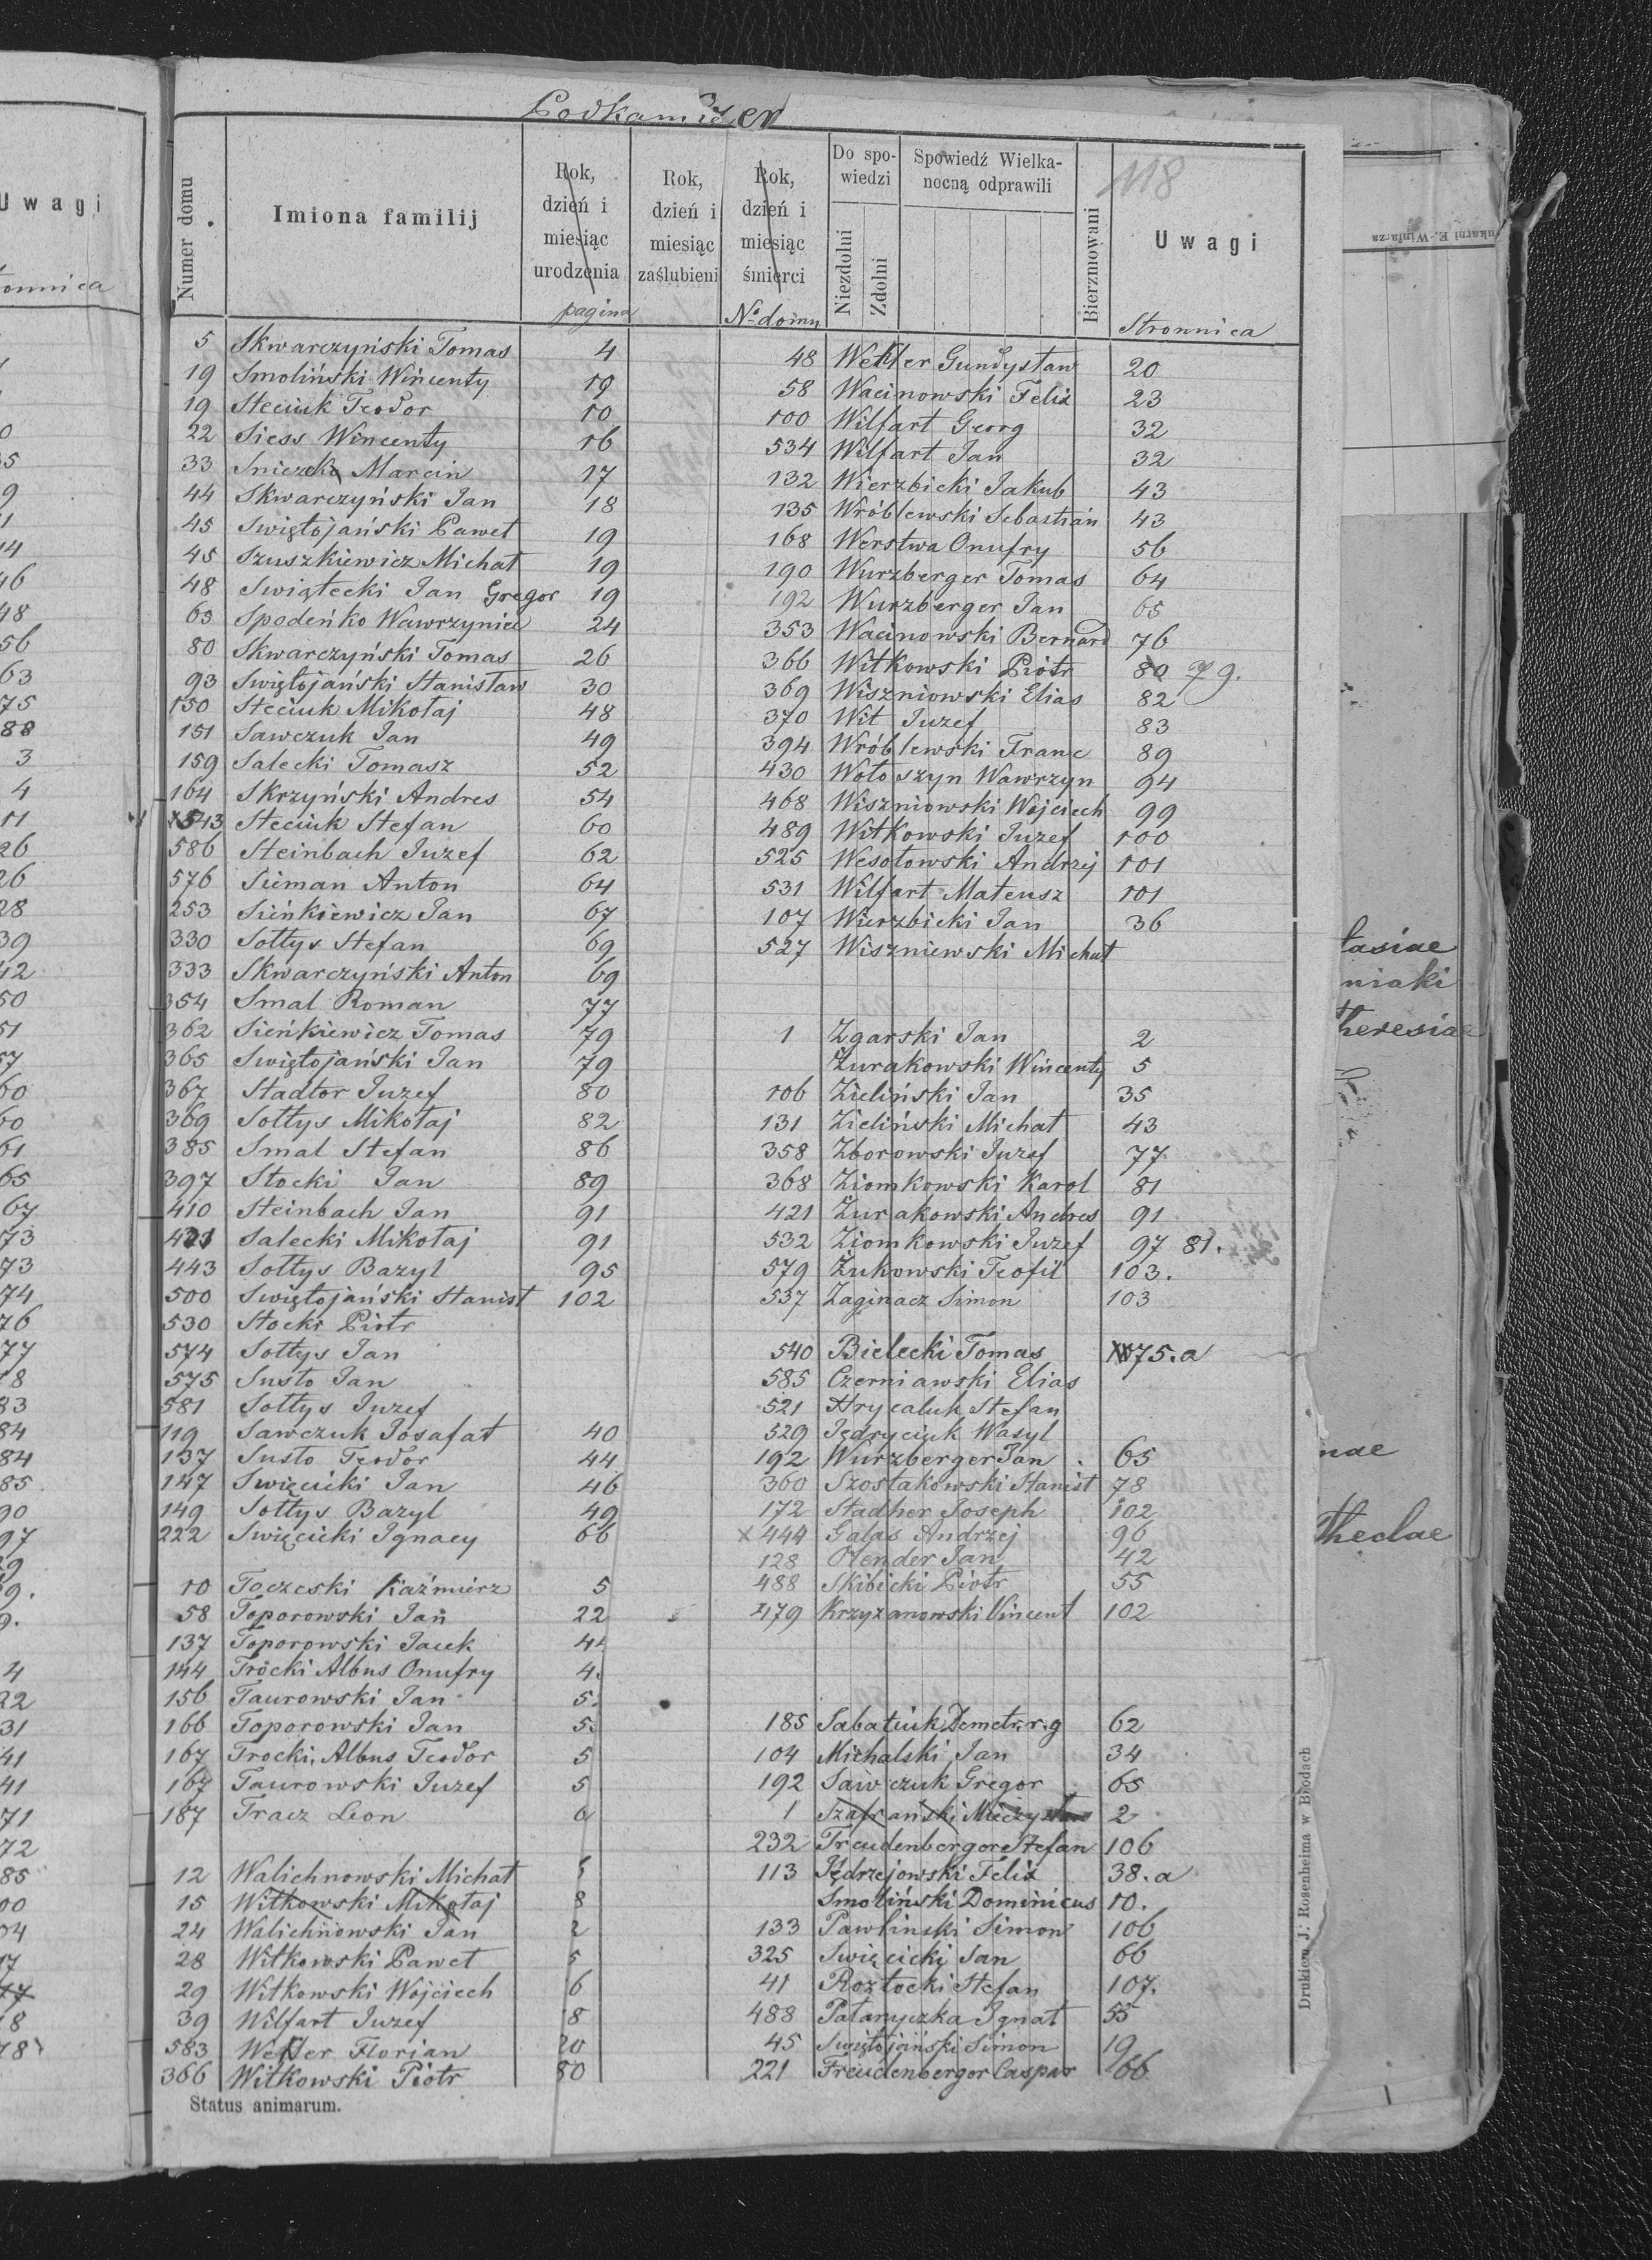 Podkamizer
118
Numer domu
Imiona familij
Rok, dzień i miesiąc urodzenia
pagina
Rok, dzień i miesiąc zaślubieni
Rok, dzień i miesiąc śmierci
No domu
Do spowiedzi
Niezdolni
Zdolni
Spowiedź Wielkanocną odprawili
Bierzmowani
Uwagi
Stronnica
5 Skwarczyński Tomas 4
19 Smoliński Wincenty 19
19 Steciuk Teodor 10
22 Siess Wincenty 16
33 Sniezek Marcin 17
44 Skwarczyński Jan 18
45 Swiętojański Paweł 19
45 Szuszkiewicz Michał 19
48 Swiątecki Jan Gregor 19
63 Spodeńko Wawrzyniec 24
80 Skwarczyński Tomas 26
93 Swiętojański Stanisław 30
150 Steciuk Mikołaj 48
151 Sawczuk Jan 49
159 Salecki Tomasz 52
164 Skrzyński Andres 54
543 Steciuk Stefan 60
586 Steinbach Juzef 62
576 Sieman Anton 64
253 Sieńkiewicz Jan 67
330 Sołtys Stefan 69
333 Skwarczyński Anton 69
354 Smal Roman 77
362 Sieńkiewicz Tomas 79
365 Swiętojański Jan 79
367 Stadtor Juzef 80
369 Sołtys Mikołaj 82
385 Smal Stefan 86
397 Stocki Jan 89
410 Steinbach Jan 91
421 Salecki Mikołaj 91
443 Sołtys Bazyl 95
500 Swiętojański Stanisł 102
530 Stocki Piotr
574 Sołtys Jan
575 Susto Jan
581 Sołtys Juzef
119 Sawczuk Josafat 40
137 Susto Teodor 44
147 Swięcicki Jan 46
149 Sołtys Bazyl 49
222 Swięcicki Ignacy 66
10 Toczeski Kaźmierz 5
58 Toporowski Jan 22
137 Toporowski Jacek 44
144 Trocki Albus Onufry 4
156 Taurowski Jan 5
166 Toporowski Jan 5
167 Trocki Albus Teodor 5
167 Taurowski Juzef 5
187 Tracz Leon 6
12 Walichnowski Michał
15 Witkowski Mikołaj 8
24 Walichnowski Jan 2
28 Witkowski Paweł 5
29 Witkowski Wojciech 6
39 Wilfart Juzef 8
583 Weker Florian 20
366 Witkowski Piotr 80
48 Wekler Gundysław 20
58 Wacinowski Felix 23
100 Wilfart Georg 32
534 Wilfart Jan 32
132 Wierzbicki Jakub 43
135 Wróblewski Sebastian 43
168 Werstwa Onufry 56
190 Wurzberger Tomas 64
192 Wurzberger Jan 65
353 Wacinowski Bernard 76
366 Witkowski Piotr 80 79.
369 Wiszniowski Elias 82
370 Wit Juzef 83
394 Wróblewski Franc 89
430 Wołoszyn Wawrzyn 94
468 Wiszniowski Wojciech 99
489 Witkowski Juzef 100
525 Wesołowski Andrzij 101
531 Wilfart Mateusz 101
107 Wierzbicki Jan 36
527 Wiszniewski Michał
1 Zgarski Jan 2
Żurakowski Wincenty 5
106 Zieliński Jan 35
131 Zieliński Michał 43
358 Zborowski Juzef 77
368 Ziomkowski Karol 81
421 Żurakowski Andres 91
532 Ziomkowski Juzef 97 81.
579 Żukowski Teofil 103.
537 Zaginacz Simon 103
540 Bielecki Tomas 75.a
585 Czerniawski Elias
521 Hrycaluk Stefan
529 Jędryciuk Wasyl
192 Wurzberger Jan 65
360 Szostakowski Stanisł 78
172 Stadher Joseph 102
x 444 Galas Andrzej 96
128 Olender Jan 42
488 Skibicki Piotr 55
479 Krzyżanowski Vincent 102
185 Sabatiuk Demetr. r.g 62
104 Michalski Jan 34
192 Sawczuk Gregor 65
1 Szafrański Mieczysław 2
232 Freudenbergor Stefan 106
113 Jędrzejowski Felix 38.a
Smoliński Dominicus 10.
133 Pawlinski Simon 106
325 Swięcicki Jan 66
41 Rozłocki Stefan 107.
488 Pałamyczka Ignat 55
45 Swiętojański Simon 19
221 Freudenbergor Caspar 66
Status animarum.
Drukiem J. Rosenheima w Brodach
Uwagi
ukarni E. Winiarza
niaki
Theresiae
Theclae